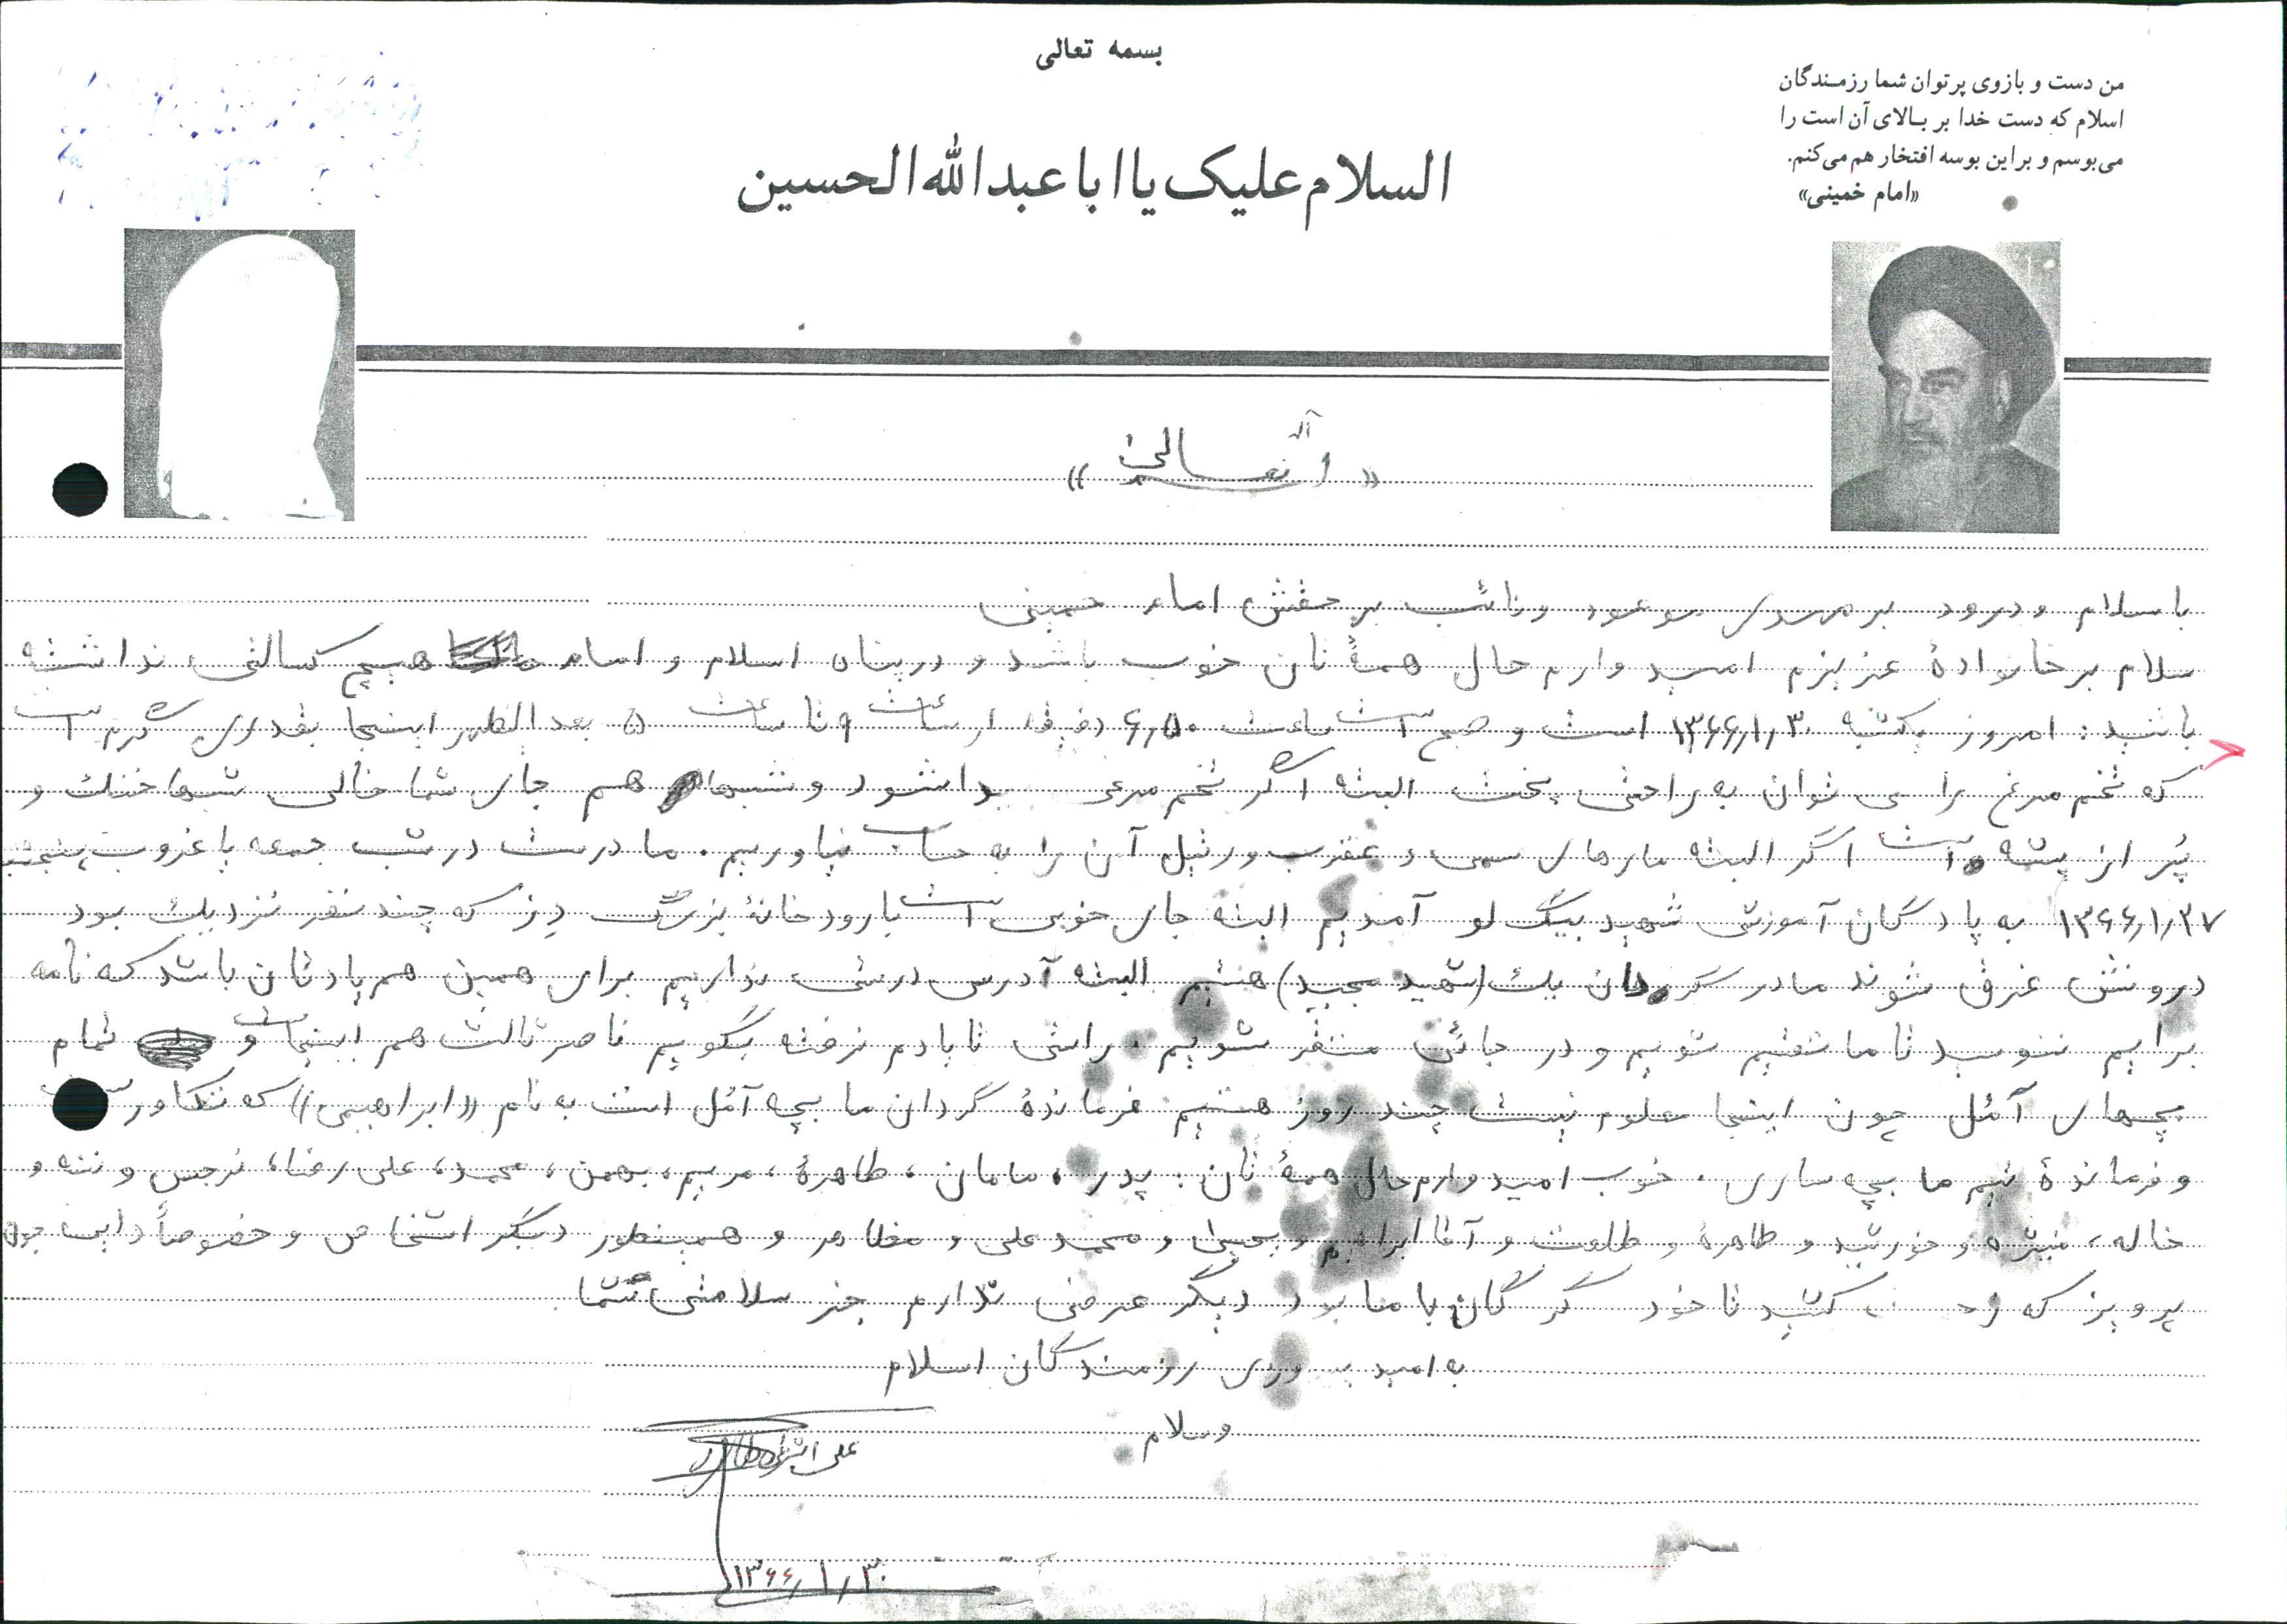 بسمه تعالی
من دست و بازوی پرتوان شما رزمندگان
اسلام که دست خدا بر بالای آن است را
می‌بوسم و بر این بوسه افتخار هم می‌کنم.
«امام خمینی»
السلام علیک یا ابا عبدالله الحسین
باسلام و درود بر مهدی موعود و نائب بر حقش امام خمینی
سلام بر خانوادهٔ عزیزم امید وارم حال همهٔ تان خوب باشد و در پناه اسلام و امام هیچ کسالتی نداشته
باشید: امروز یکشنبه ۱۳۶۶/۱/۳۰ است و صبح است ساعت ۶/۵۰ دقیقه از ساعت ۹ تا ساعت ۵ بعد الظهر اینجا بقدری گرم است
که تخم مرغ را می توان به راحتی پخت البته اگر تخم مرغی پیدا شود و شبها هم جای شما خالی شبها خنک و
پُر از پشه است اگر البته مارهای سمی و عقرب ورتیل آن را به حساب نیاوریم. ما درست در شب جمعه با غروب پنجشنبه
۱۳۶۶/۱/۲۷ به پادگان آموزشی شهید بیگ لو آمدیم البته جای خوبی است با رودخانهٔ بزرگ دِز که چند نفر نزدیک بود
درونش غرق شوند ما در گردان یک (شهید مجید) هستیم البته آدرس درستی نداریم برای همین هم یادتان باشد که نامه
برایم ننوسید تا ما تقسیم شویم و در جائی مستقر شویم. راستی تا یادم نرفته بگویم ناصر ثالث هم اینجاست و تمام
بچهای آمُل چون اینجا معلوم نیست چند روز هستیم فرماندهٔ گردان ما بچه آمُل است به نام «ابراهیمی» که تکاور است
و فرماندهٔ تیم ما بچه ساری. خوب امیدوارم حال همهٔ تان: پدر، مامان، طاهرهٔ، مریم، بهمن، محمد، علی رضا، نرجس و ننه و
خاله، منیژه و خورشید و طاهرهٔ و طلعت و آقا ابراهیم و یحیی و محمد علی و مظاهر و همینطور دیگر اشخاص و خصوصاً دایی جون
پرویز که کنید تا خود گرگان با ما بود دیگر عرضی ندارم جز سلامتی شما
به امید پیروزی رزمندگان اسلام
وسلام
۱۳۶۶/۱/۳۰